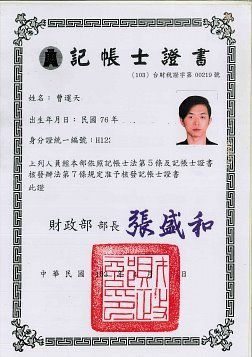 記帳士證書
(103) 台財稅證字第 00219 號
姓名：曾運天
出生年月日：民國 76 年
身分證統一編號：H12
上列人員經本部依照記帳士法第 5 條及記帳士證書
核發辦法第 7 條規定准予核發記帳士證書
此證
財政部 部長 張盛和
中華民國